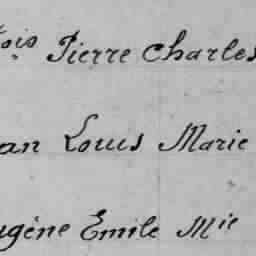 ois Pierre Charles
an Louis Marie
ugène Emile Mie